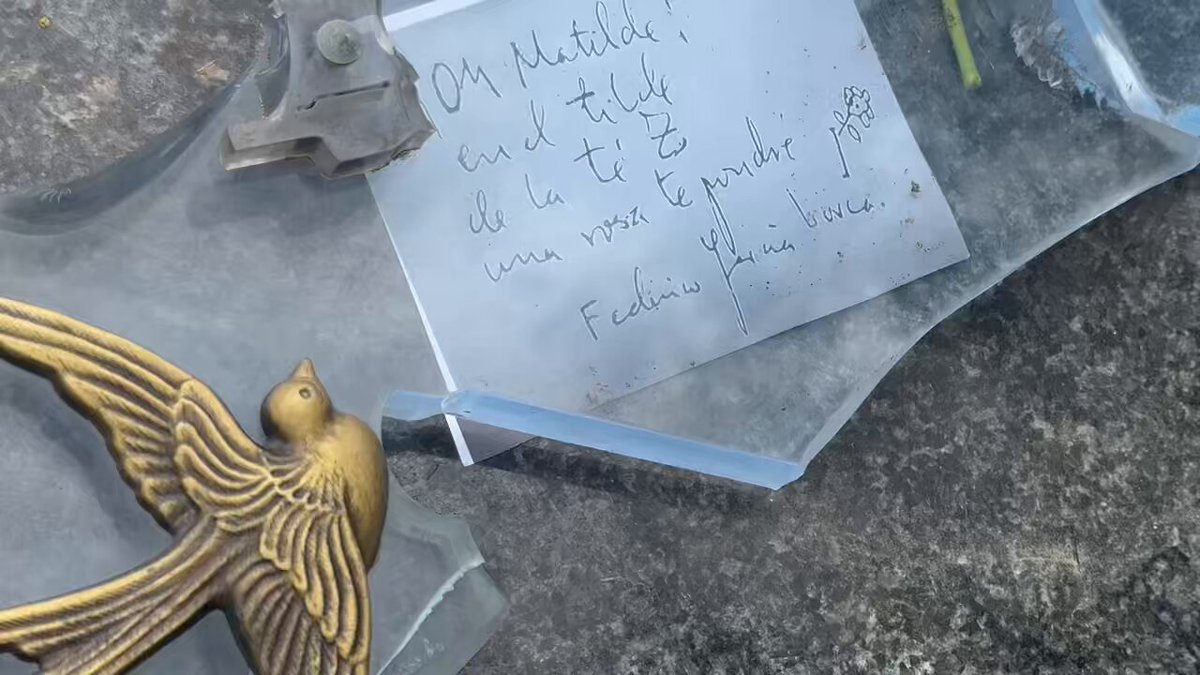 Oh Matilde!
en el tilde
de la té
una rosa te pondré
Federico García Lorca.